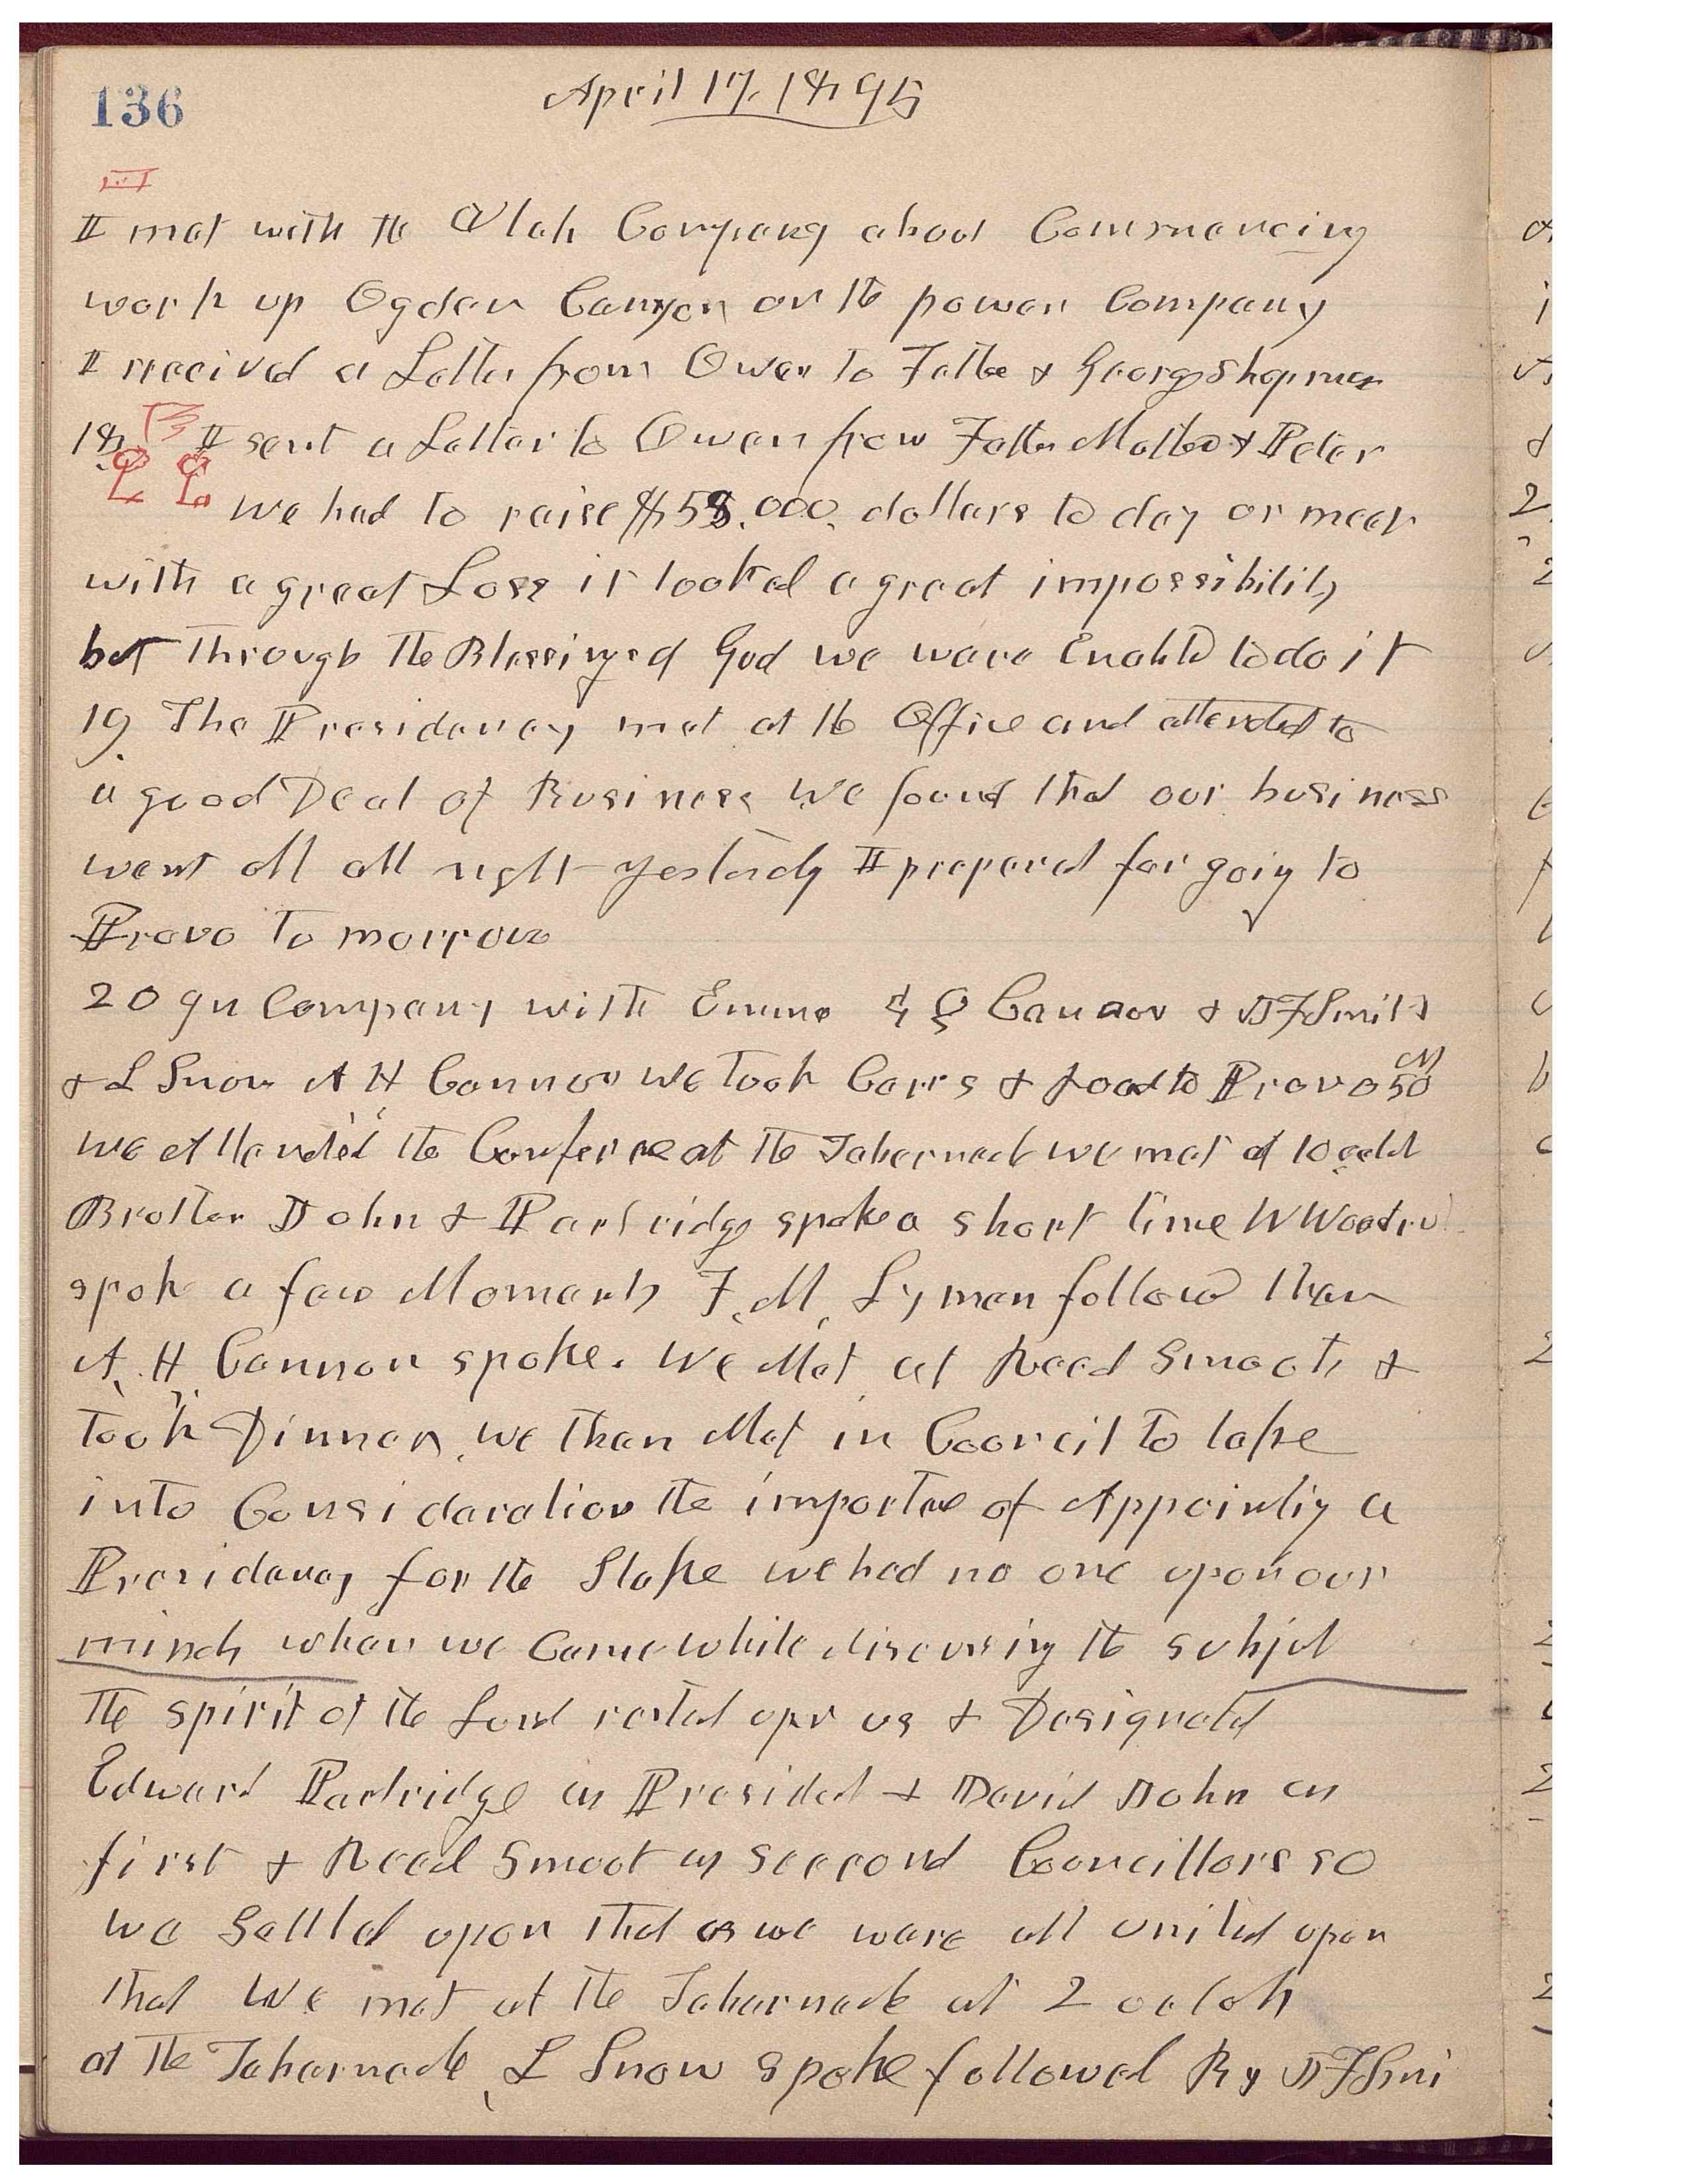 136
April 17, 1895
I met with the Utah Company about Commencing
work up Ogden Canyon on the power Company
I received a Letter from Owen to Father & George Shepman
18 I sent a Letter to Owen from Father Mother & Peter
we had to raise $58,000, dollars to day or meet
with a great Loss it looked a great impossibility
but through the Blessings of God we were Enabled to do it
19 The Presidency met at the Office and attended to
a good Deal of Business We found that our business
went all all right yesterday I prepared for going to
Provo to morrow
20 In Company with Emma G Q Cannon & J F Smith
& L Snow A H Cannon we took Cars & road to Provo 50 M
we attended the Conference at the Tabernacle we met at 10 oclok
Brother John & Partridge spoke a short time W Woodruf
spoke a few Moments F. M. Lyman followed then
A. H Cannon spoke. We Met at Reed Smoots &
took Dinner, we then Met in Council to take
into Consideration the importance of Appointing a
Presidency for the Stake we had no one upon our
minds when we Came while discussing the subject
the spirit of the Lord rested upon us & Designated
Edward Partridge as President & David John as
first & Reed Smoot as seccond Councillors so
we Settled upon that as we were all united upon
that We met at the Tabernacle at 2 oclok
at the Tabernacle, L Snow spoke followed By J F Smi